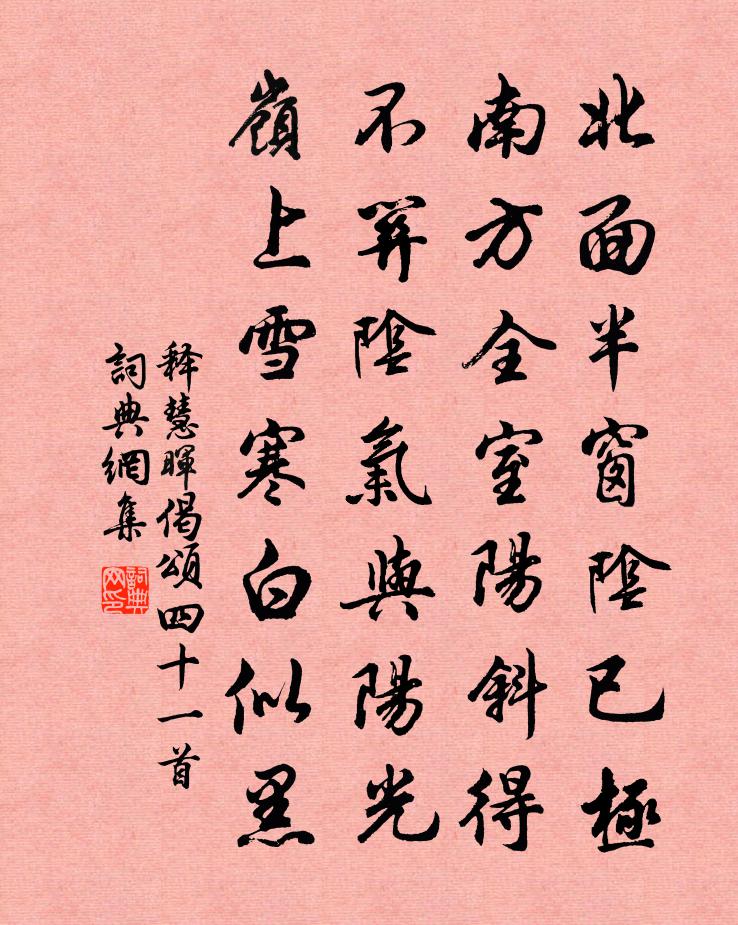 北面半窗陰已極
南方全室陽斜得
不算陰氣與陽光
嶺上雪寒白似黑
釋慧暉偈頌四十一首
詞典網集
詞典網印